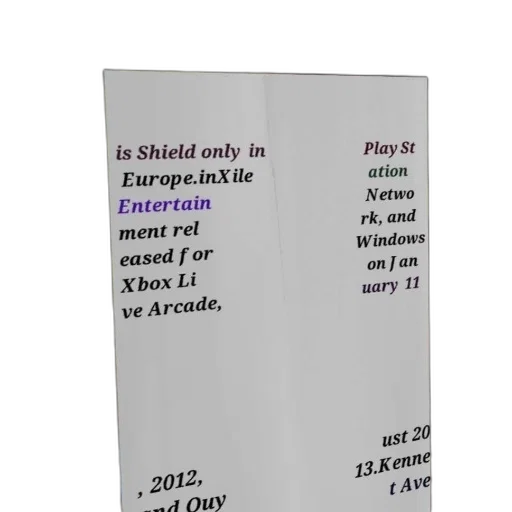 is Shield only in
Europe.inXile
Entertain
ment rel
eased for
Xbox Li
ve Arcade,
PlaySt
ation
Netwo
rk, and
Windows
on Jan
uary 11
, 2012,
and Ouy
ust 20
13.Kenne
t Ave